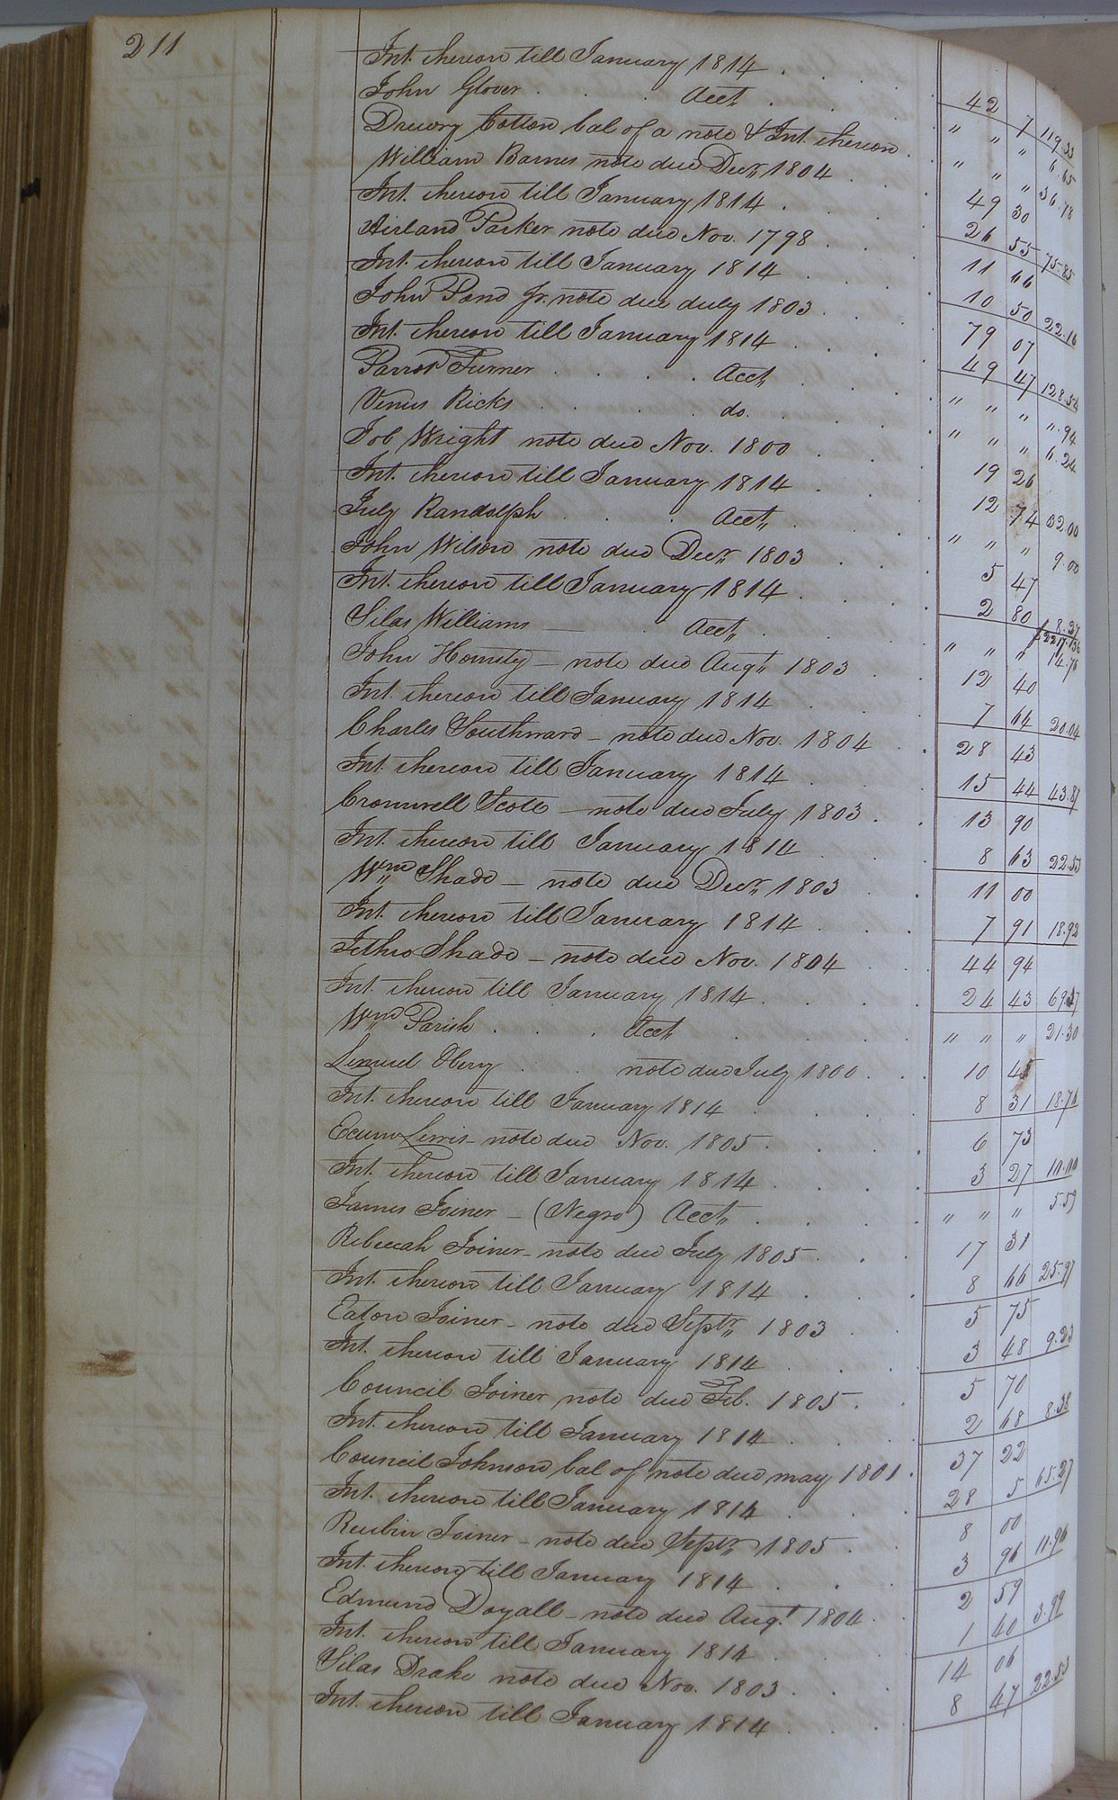 211
Int. thereon till January 1814 . . . 42 7 119.33
John Glover . . . Acct . . " " " 6.65
Drewry Cotton bal of a note & Int. thereon . " " " 36.78
William Barnes note due Decr. 1804 . . 49 30
Int. thereon till January 1814 . . . 26 55 75.85
Parker note due Nov. 1798 . . 11 66
Int. thereon till January 1814 . . 10 50 22.16
John Pond Jr. note due duly 1803 . . . 79 07
Int. thereon till January 1814 . . . 49 47 128.54
Turner . . . . Acct . . " " " ".94
Venus Ricks . . . . do. . " " " 6.24
Job Wright note due Nov. 1800 . . 19 26
Int. thereon till January 1814 . . . 12 74 32.00
July Randolph . . . Acct,, . . " " " 9.00
John Wilson note due Decr,, 1803 . . . 5 47
Int. thereon till January 1814 . . . 2 80 8.27
Silas Williams — . Acct,, . . " " " 14.76
John — note due Augt,, 1803 . . 12 40
Int. thereon till January 1814 . . 7 64 20.04
Charles Southward – note due Nov. 1804 . . 28 43
Int. thereon till January 1814 . . 15 44 43.87
Cromwell Scott – note due July 1803 . . 13 90
Int. thereon till January 1814 . . 8 63 22.53
Wm,, Shade – note due Decr,, 1803 . . 11 00
Int. thereon till January 1814 . . 7 91 18.92
Jethro Shade – note due Nov. 1804 . . 44 94
Int. thereon till January 1814 . . . 24 43 69.37
Wm,, Parish . . . Acct . . . " " " 21.30
Lemuel Obery . . note due July 1800 . . 10 45
Int. thereon till January 1814 . . . 8 31 18.76
Lewis – note due Nov. 1805 . . . 6 73
Int. thereon till January 1814 . . . 3 27 10.00
James Joiner – (Negro) Acct,, . . . " " " 5.59
Rebecah Joiner – note due July 1805 . . . 17 31
Int. thereon till January 1814 . . . 8 66 25.97
Eaton Joiner – note due Septr,, 1803 . . 5 75
Int. thereon till January 1814 . . . 3 48 9.23
Council Joiner note due Feb. 1805 . . 5 70
Int. thereon till January 1814 . . . 2 68 8.38
Council Johnson bal of note due may 1801 . 37 22
Int. thereon till January 1814 . . . 28 5 65.27
Reubin Joiner – note due Septr,, 1805 . . 8 00
Int. thereon till January 1814 . . . 3 96 11.96
Edmund Doyall – note due Augt. 1804 . 2 59
Int. thereon till January 1814 . . . 1 40 3.99
Silas Drake note due Nov. 1803 . . . 14 06
Int. thereon till January 1814 . . . 8 47 22.53